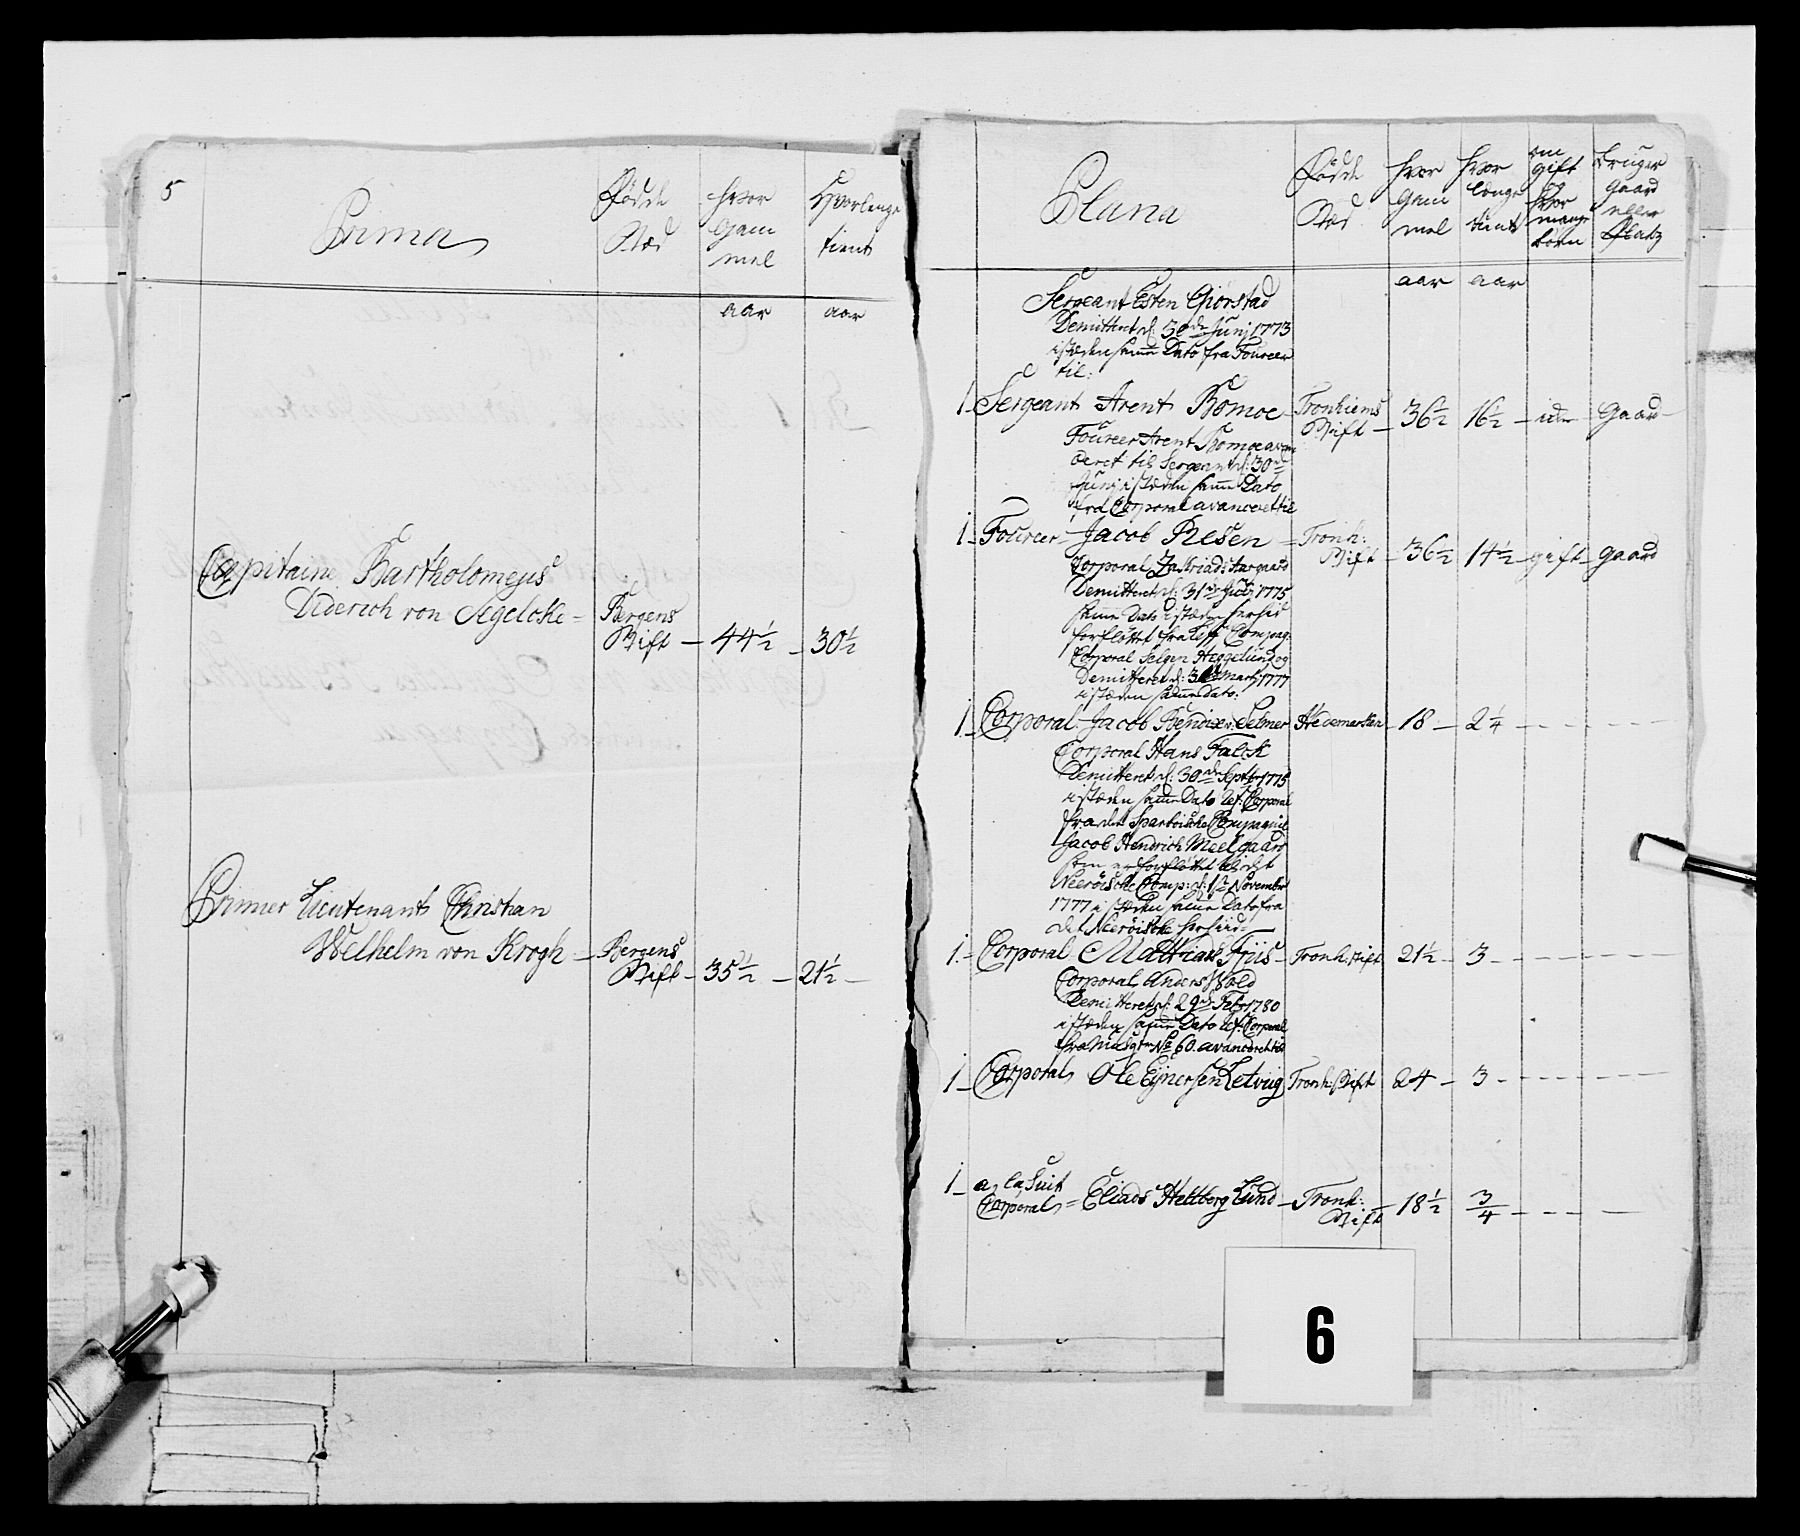 5
Prima
Fødde
Stæd
hvor
Gam
mel
Hvorlenge
tient
aar
aar
Capitaine Bartholomeus
Diderich von Segelcke =
Bergens
Stift
44½
30½
Primier Lieutenant Christian
Welhelm von Krogh
Bergens
Stift
35½
21½
Plana
Fødde
Stæd
hvor
Gam
mel
hvor
længe
tient
om
gift
og
hvor
mange
börn
bruger
gaard
eller
Platz
aar
aar
Sergeant Esten Giorstad
Demitteret d: 30de Junj 1773
istæden samme Dato fra Foureer
til:
1 Sergeant Arent Bömoe
Tronhiems
Stift
36½
16½
Gaard
Foureer Arent Bömoe avan
ceret til Sergeant d: 30de
Junj istæden samme Dato
fra Corporal avanceret til
1 Foureer Jacob Resen
Tronh:
Stift
36½
14½
gift
gaard
Corporal
Demitteret d: 31de 1775
samme Dato istæden herhid
forfløttet fra Compag:
Corporal Selgen Heggelund og
Demitteret d: Martj 1777
istæden samme Dato:
1 Corporal Jacob Bendixen Selmer
Hedemarken
18
2¼
Corporal Hans Falck
Demitteret d: 30de Septbr 1775
istæden samme Dato Corporal
fra det Sparboiske Compagnie
Jacob Hendrich Meelgaard
som er forfløttet til det
Neeröiske Comp: d: 1te Novembr
1777 istæden samme Dato fra
det Neeröiske herhid =
1 Corporal Matthias Friis
Tronh: Stift
21½
3
Corporal Anders Wold
Demitteret d: 29de Febr 1780
istæden samme Dato Corporal
fra No 60. avanceret til
1 Corporal Ole Ejnersen Letviig
Tronh: Stift
24
3
1 a la Suit
Corporal = Eliads Hellberg Lund
Tronh:
Stift
18½
3/4
6